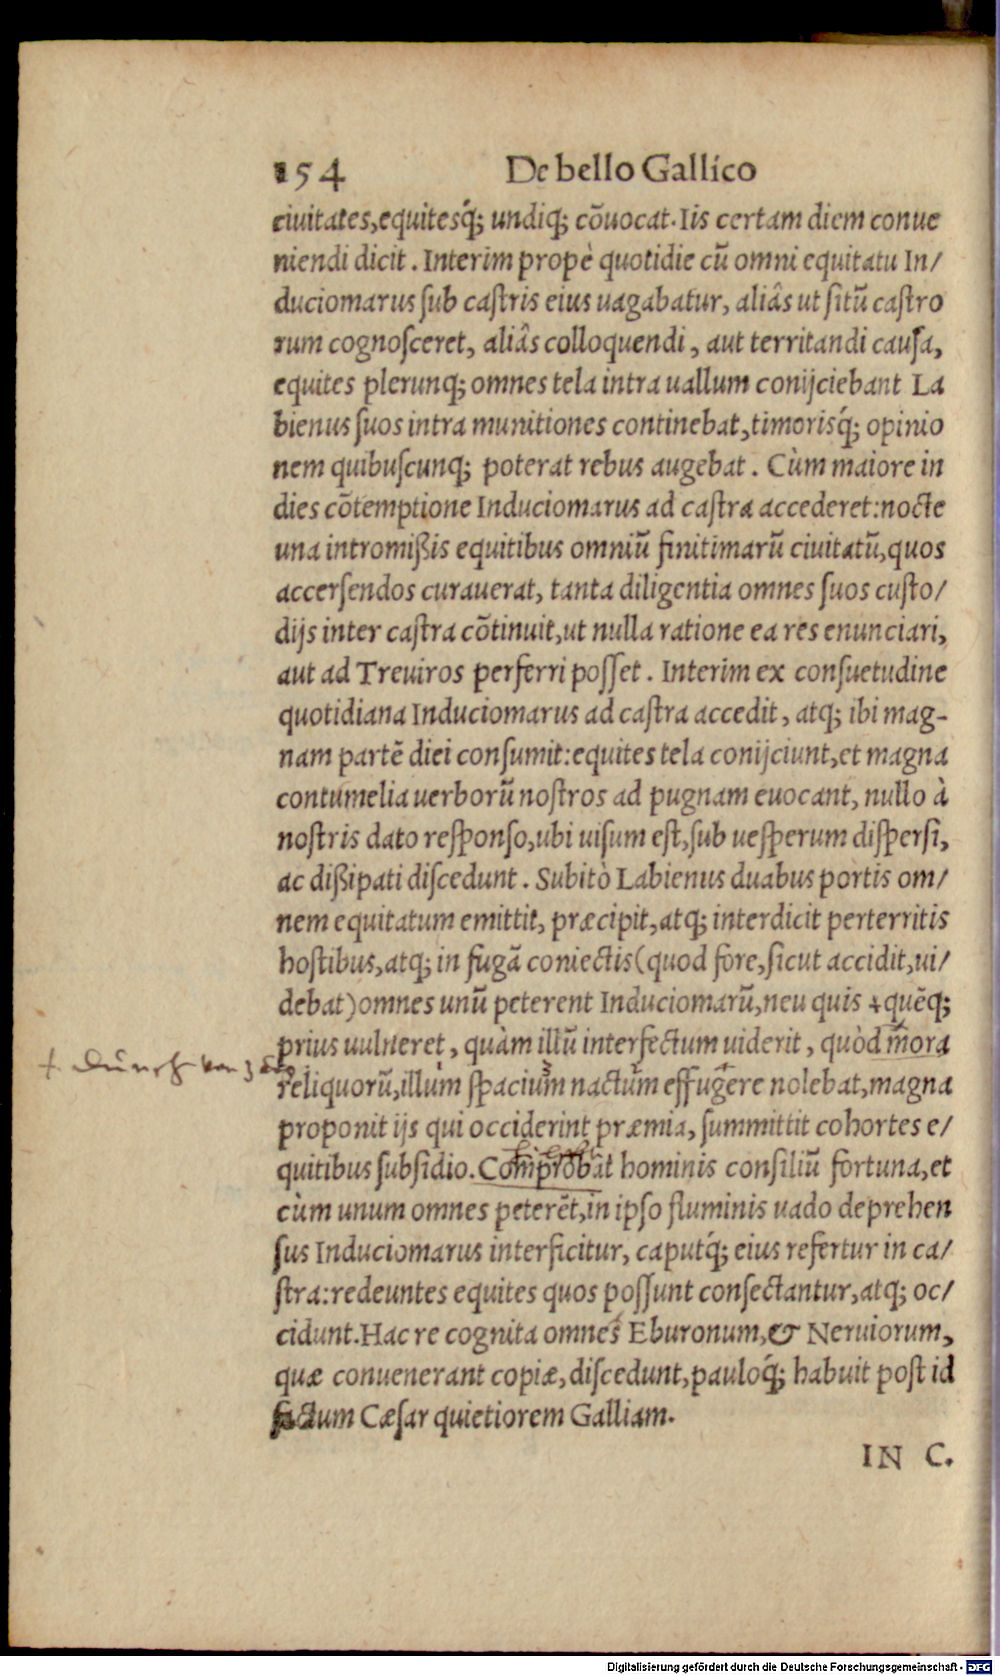 154 De bello Gallico
ciuitates,equitesq́; undiq; cōuocat.Iis certam diem conue
niendi dicit. Interim propè quotidie cū omni equitatu In/
duciomarus ſub caſtris eius uagabatur, aliâs ut ſitū caſtro
rum cognoſceret, aliâs colloquendi, aut territandi cauſa,
equites plerunq; omnes tela intra uallum conijciebant La
bienus ſuos intra munitiones continebat,timorisq́; opinio
nem quibuſcunq; poterat rebus augebat. Cùm maiore in
dies cōtemptione Induciomarus ad caſtra accederet:nocte
una intromißis equitibus omniū finitimarū ciuitatū,quos
accerſendos curauerat, tanta diligentia omnes ſuos cuſto/
dijs inter caſtra cōtinuit,ut nulla ratione ea res enunciari,
aut ad Treuiros perferri poſſet. Interim ex conſuetudine
quotidiana Induciomarus ad caſtra accedit, atq; ibi mag-
nam partē diei conſumit:equites tela conijciunt,et magna
contumelia uerborū noſtros ad pugnam euocant, nullo à
noſtris dato reſponſo,ubi uiſum eſt,ſub ueſperum diſperſi,
ac dißipati diſcedunt. Subitò Labienus duabus portis om/
nem equitatum emittit, præcipit,atq; interdicit perterritis
hoſtibus,atq; in fugā coniectis(quod fore,ſicut accidit,ui/
debat)omnes unū peterent Induciomarū,neu quis quēq;
prius uulneret, quàm illū interfectum uiderit, quòd mora
reliquorū,illum ſpacium nactum effugere nolebat,magna
proponit ijs qui occiderint præmia, ſummittit cohortes e/
quitibus ſubſidio.Comprobat hominis conſiliū fortuna,et
cùm unum omnes peterēt,in ipſo fluminis uado deprehen
ſus Induciomarus interficitur, caputq́; eius refertur in ca/
ſtra:redeuntes equites quos poſſunt conſectantur,atq; oc/
cidunt.Hac re cognita omnes Eburonum,& Neruiorum,
quæ conuenerant copiæ,diſcedunt,pauloq́; habuit poſt id
factum Cæſar quietiorem Galliam.
IN C.
Digitalisierung gefördert durch die Deutsche Forschungsgemeinschaft - DFG